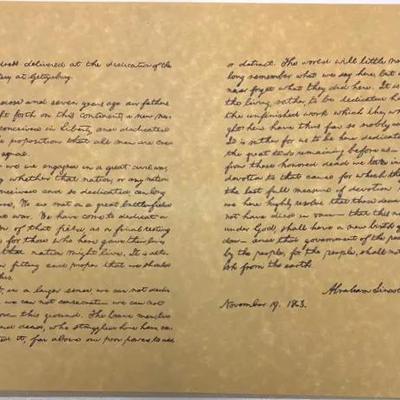 dress delivered at the dedication of the
tery at Gettysburg.
score and seven years ago our fathers
ght forth on this continent, a new na
conceived in Liberty, and dedicated
he proposition that all men are cre
equal.
we are engaged in a great civil war,
g whether that nation, or any nation
onceived and so dedicated, can long
We are met on a great battlefield
war. We have come to dedicate a
n of that field, as a final resting
for those who here gave their lives
that nation might live. It is alto
fitting and proper that we should
this.
t, in a larger sense, we can not dedic
we can not consecrate we can not
ow this ground. The brave men, liv
and dead, who struggled here have con
ted it, far above our poor power to add
or detract. The world will little no
long remember what we say here, but it
never forget what they did here. It is
the living, rather, to be dedicated he
the unfinished work which they who
ght here have thus far so nobly
It is rather for us to be here dedicated
the great task remaining before us
from these honored dead we take in
devotion to that cause for which the
the last full measure of devotion
we here highly resolve that these dead
not have died in vain that this na
under God, shall have a new birth of
dom and that government of the peo
by the people, for the people, shall not
ish from the earth.
Abraham Lincol
November 19, 1863.